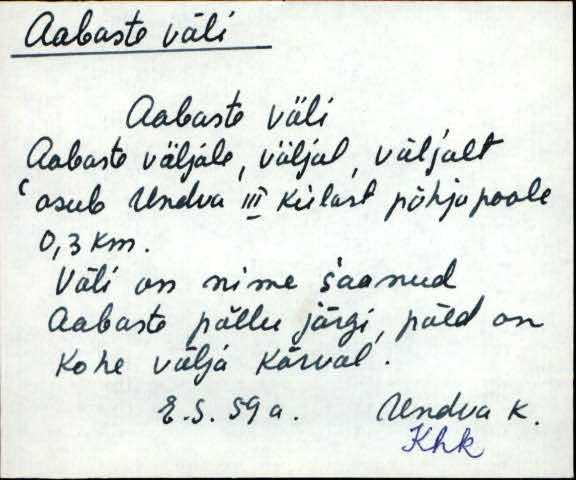 Aabaste väli
Aabaste väli
Aabaste väljale, väljal, väljalt
asub Undva III külast põhjapoole
0,3 km.
Väli on nime saanud
Aabaste põllu järgi, põld on
kohe välja kõrval.
E.S. 59 a. Undva k.
Khk